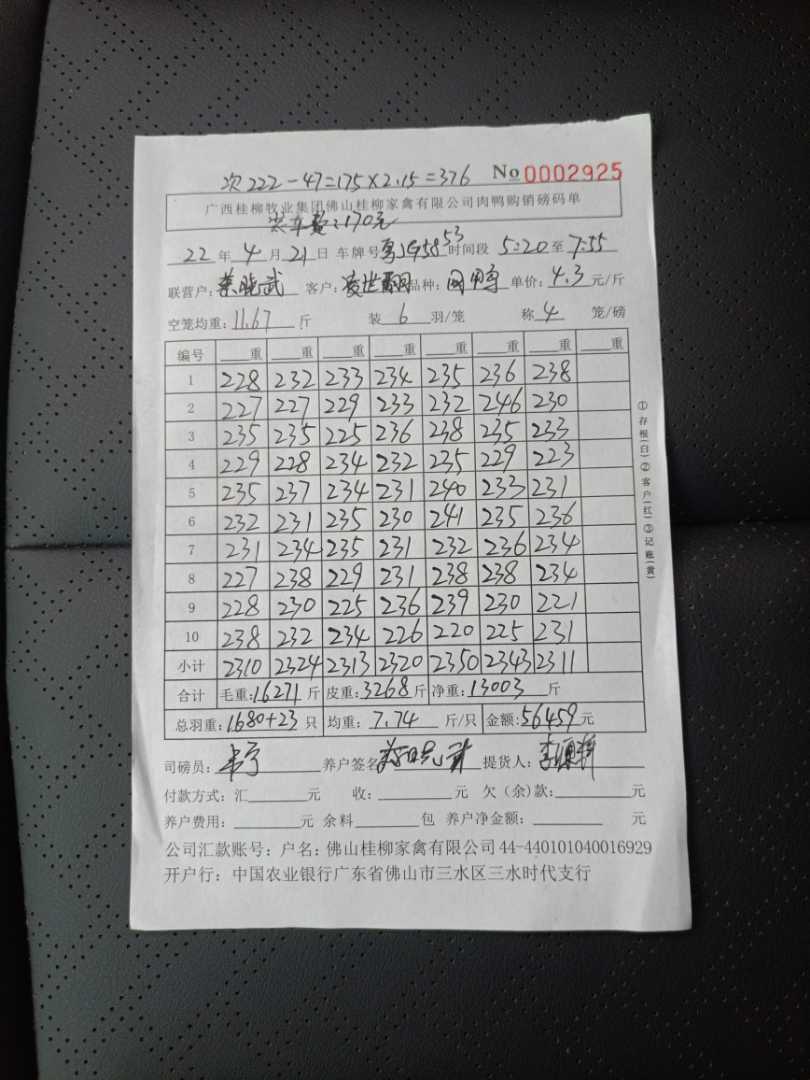 次 222-47=175×2.15=376 No 0002925
广西桂柳牧业集团佛山桂柳家禽有限公司肉鸭购销磅码单
170元
22 年 4 月 21 日 车牌号 粤JG5853 时间段 5:20 至 7:55
联营户: 客户: 品种: 单价: 4.3 元/斤
空笼均重: 11.67 斤 装 6 羽/笼 称 4 笼/磅
编号 重 重 重 重 重 重 重 重
1 228 232 233 234 235 236 238
2 227 227 229 233 232 246 230
3 235 235 225 236 238 235 233
4 229 228 234 232 235 229 223
5 235 237 234 231 240 233 231
6 232 231 235 230 241 235 236
7 231 234 235 231 232 236 234
8 227 238 229 231 238 238 234
9 228 230 225 236 239 230 221
10 238 232 234 226 220 225 231
小计 2310 2324 2313 2320 2350 2343 2311
合计 毛重: 16271 斤 皮重: 3268 斤 净重: 13003 斤
总羽重: 1680+23 只 均重: 7.74 斤/只 金额: 56459 元
司磅员: 养户签名 提货人:
付款方式: 汇 元 收: 元 欠(余)款: 元
养户费用: 元 余料 包 养户净金额: 元
公司汇款账号: 户名: 佛山桂柳家禽有限公司 44-440101040016929
开户行: 中国农业银行广东省佛山市三水区三水时代支行
①存根(白)②客户(红)③记账(黄)